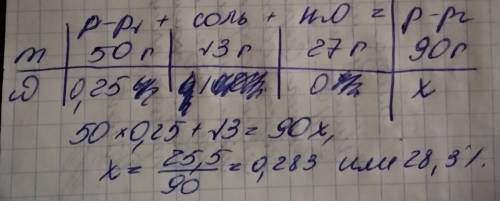 р-р₁ + соль + H₂O = р-р₂
m | 50 г | 13 г | 27 г | 90 г
ω | 0,25 | 1 | 0 | x
50 × 0,25 + 13 = 90x,
x = 25,5 / 90 = 0,283 или 28,3%.